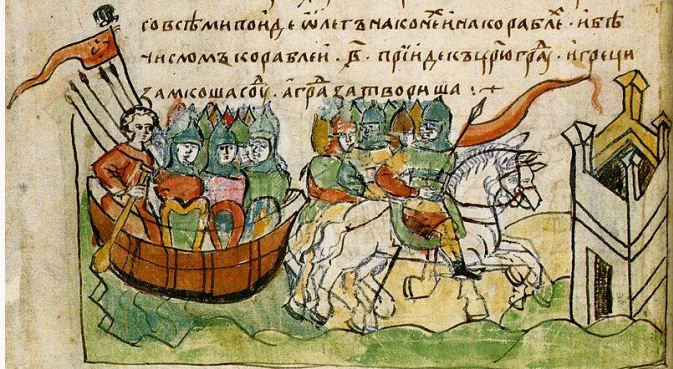 со всѣми поиде ѡлегъ на конеи и на кораблѣ · и бѣ
числомъ кораблеи · в҃ · прїиде къ цр҃юграⷣ · и греци
замкоша соуⷣ · а граⷣ затвориша :·